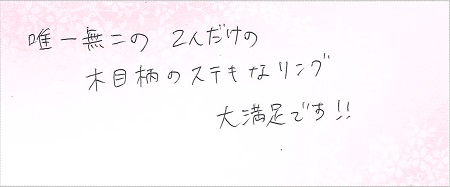 唯一無二の 2人だけの
木目柄のステキなリング
大満足です!!